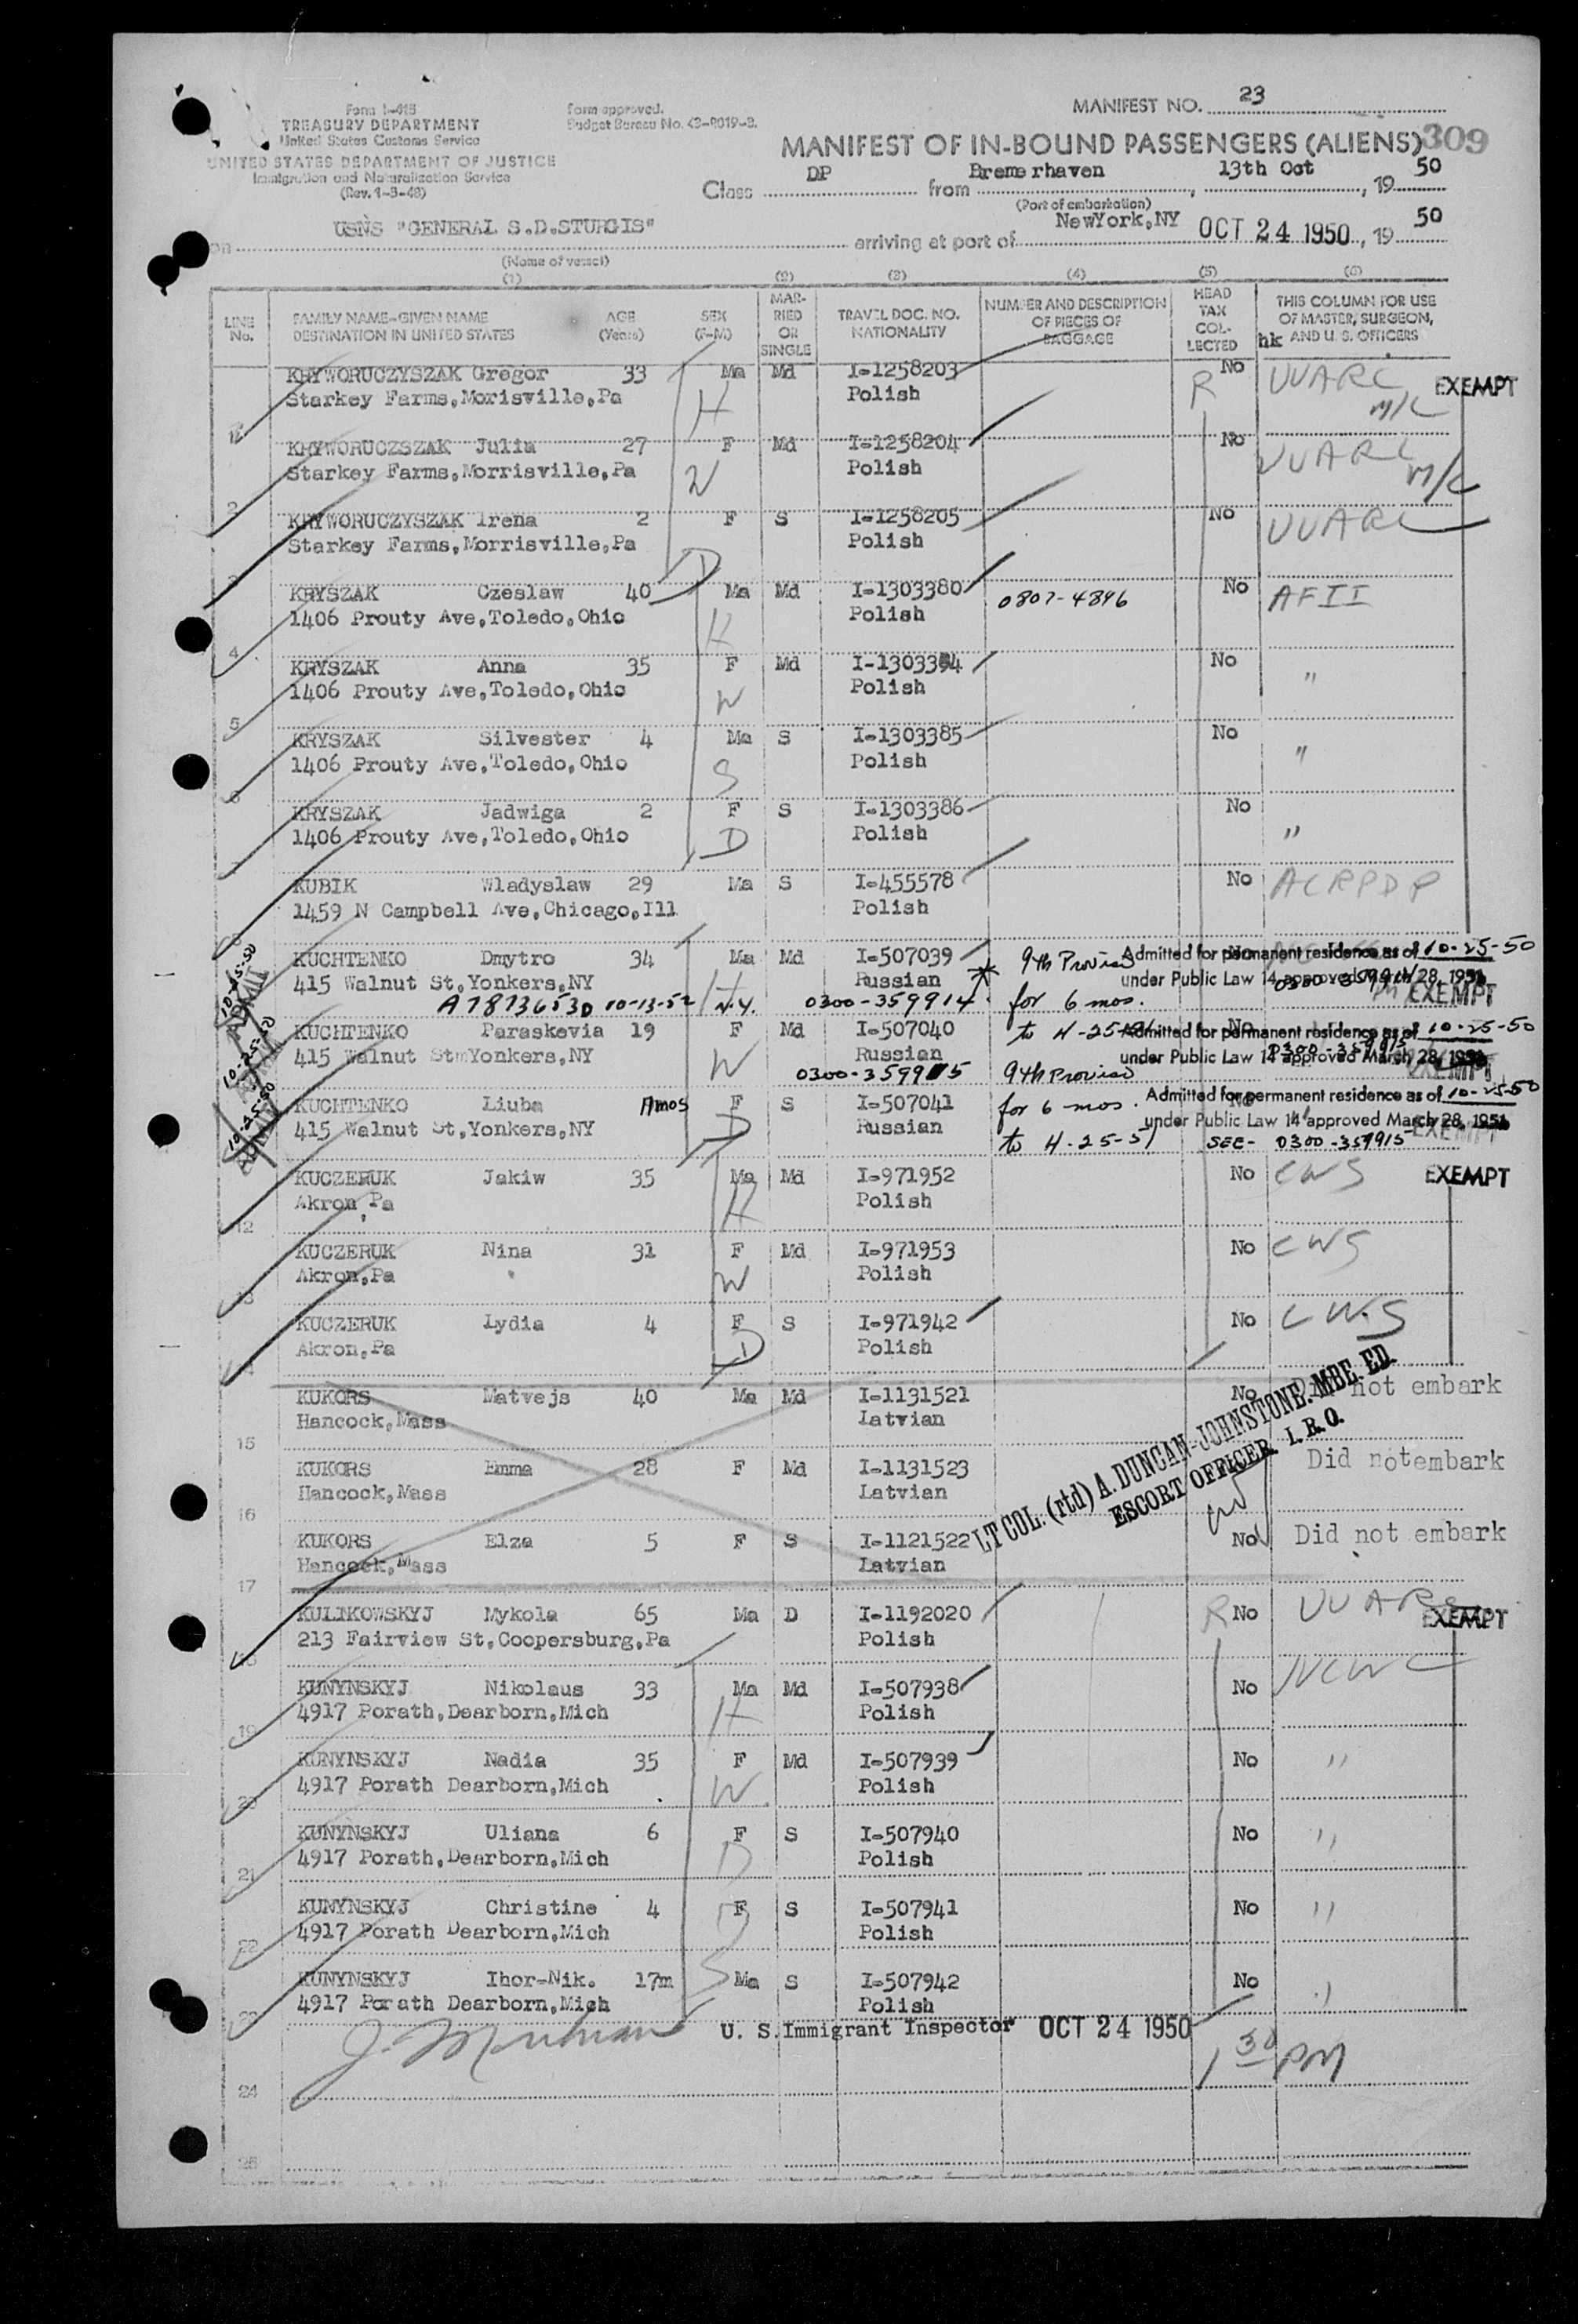 Form I-415
TREASURY DEPARTMENT
United States Customs Service
UNITED STATES DEPARTMENT OF JUSTICE
Immigration and Naturalization Service
(Rev. 1-3-48)
Form approved.
Budget Bureau No. 43-R019-3.
MANIFEST NO. 23
MANIFEST OF IN-BOUND PASSENGERS (ALIENS) 309
Class DP from Bremerhaven, 13th Oct, 19 50
(Port of embarkation)
on USNS "GENERAL S.D.STURGIS" arriving at port of NewYork,NY OCT 24 1950, 19 50
(Name of vessel)
(1) (2) (3) (4) (5) (6)
LINE No.
FAMILY NAME-GIVEN NAME AGE SEX
DESTINATION IN UNITED STATES (Years) (F-M)
MARRIED OR SINGLE
TRAVEL DOC. NO. NATIONALITY
NUMBER AND DESCRIPTION OF PIECES OF BAGGAGE
HEAD TAX COLLECTED
THIS COLUMN FOR USE OF MASTER, SURGEON, AND U. S. OFFICERS
hk
KRYWORUCZYSZAK Gregor 33 Ma Md I-1258203 No UUARC EXEMPT
Starkey Farms,Morisville,Pa H Polish R M/C
KRYWORUCZSZAK Julia 27 F Md I-1258204 No UUARC
Starkey Farms,Morrisville,Pa W Polish M/C
2
KRYWORUCZYSZAK Irena 2 F S I-1258205 No UUARC
Starkey Farms,Morrisville,Pa D Polish
3
KRYSZAK Czeslaw 40 Ma Md I-1303380 0807-4896 No AFII
1406 Prouty Ave,Toledo,Ohio H Polish
4
KRYSZAK Anna 35 F Md I-1303394 No "
1406 Prouty Ave,Toledo,Ohio W Polish
5
KRYSZAK Silvester 4 Ma S I-1303385 No "
1406 Prouty Ave,Toledo,Ohio S Polish
6
KRYSZAK Jadwiga 2 F S I-1303386 No "
1406 Prouty Ave,Toledo,Ohio D Polish
7
KUBIK Wladyslaw 29 Ma S I-455578 No ACRPDP
1459 N Campbell Ave,Chicago,Ill Polish
8
KUCHTENKO Dmytro 34 Ma Md I-507039 9th Proviso Admitted for permanent residence as of 10-25-50
415 Walnut St,Yonkers,NY H Russian under Public Law 14 approved March 28, 1951
A7873653D 10-13-52 N.Y. 0300-359914 for 6 mos. EXEMPT
KUCHTENKO Paraskevia 19 F Md I-507040 to 4-25-51 Admitted for permanent residence as of 10-25-50
415 Walnut St Yonkers,NY W Russian under Public Law 14 approved March 28, 1951
0300-359915 9th Proviso EXEMPT
KUCHTENKO Liuba 11mos F S I-507041 for 6 mos. Admitted for permanent residence as of 10-25-50
415 Walnut St,Yonkers,NY D Russian under Public Law 14 approved March 28, 1951
to 4-25-51 SEE- 0300-359915 EXEMPT
KUCZERUK Jakiw 35 Ma Md I-971952 No CWS EXEMPT
Akron,Pa H Polish
12
KUCZERUK Nina 31 F Md I-971953 No CWS
Akron,Pa W Polish
13
KUCZERUK Lydia 4 F S I-971942 No CWS
Akron,Pa D Polish
14
KUKORS Matvejs 40 Ma Md I-1131521 No Did not embark
Hancock,Mass Latvian
15
KUKORS Emma 28 F Md I-1131523 Did notembark
Hancock,Mass Latvian
16
KUKORS Elza 5 F S I-1121522 No Did not embark
Hancock,Mass Latvian
17
LT COL. (rtd) A. DUNCAN-JOHNSTONE. MBE. ED.
ESCORT OFFICER. I. R. O.
KULIKOWSKYJ Mykola 65 Ma D I-1192020 R No UUARC EXEMPT
213 Fairview St,Coopersburg,Pa Polish
18
KUNYNSKYJ Nikolaus 33 Ma Md I-507938 No NCWC
4917 Porath,Dearborn,Mich H Polish
19
KUNYNSKYJ Nadia 35 F Md I-507939 No "
4917 Porath Dearborn,Mich W Polish
20
KUNYNSKYJ Uliana 6 F S I-507940 No "
4917 Porath,Dearborn,Mich D Polish
21
KUNYNSKYJ Christine 4 F S I-507941 No "
4917 Porath Dearborn,Mich D Polish
22
KUNYNSKYJ Ihor-Nik. 17m Ma S I-507942 No "
4917 Porath Dearborn,Mich S Polish
23
U. S. Immigrant Inspector OCT 24 1950
1 30 PM
24
25